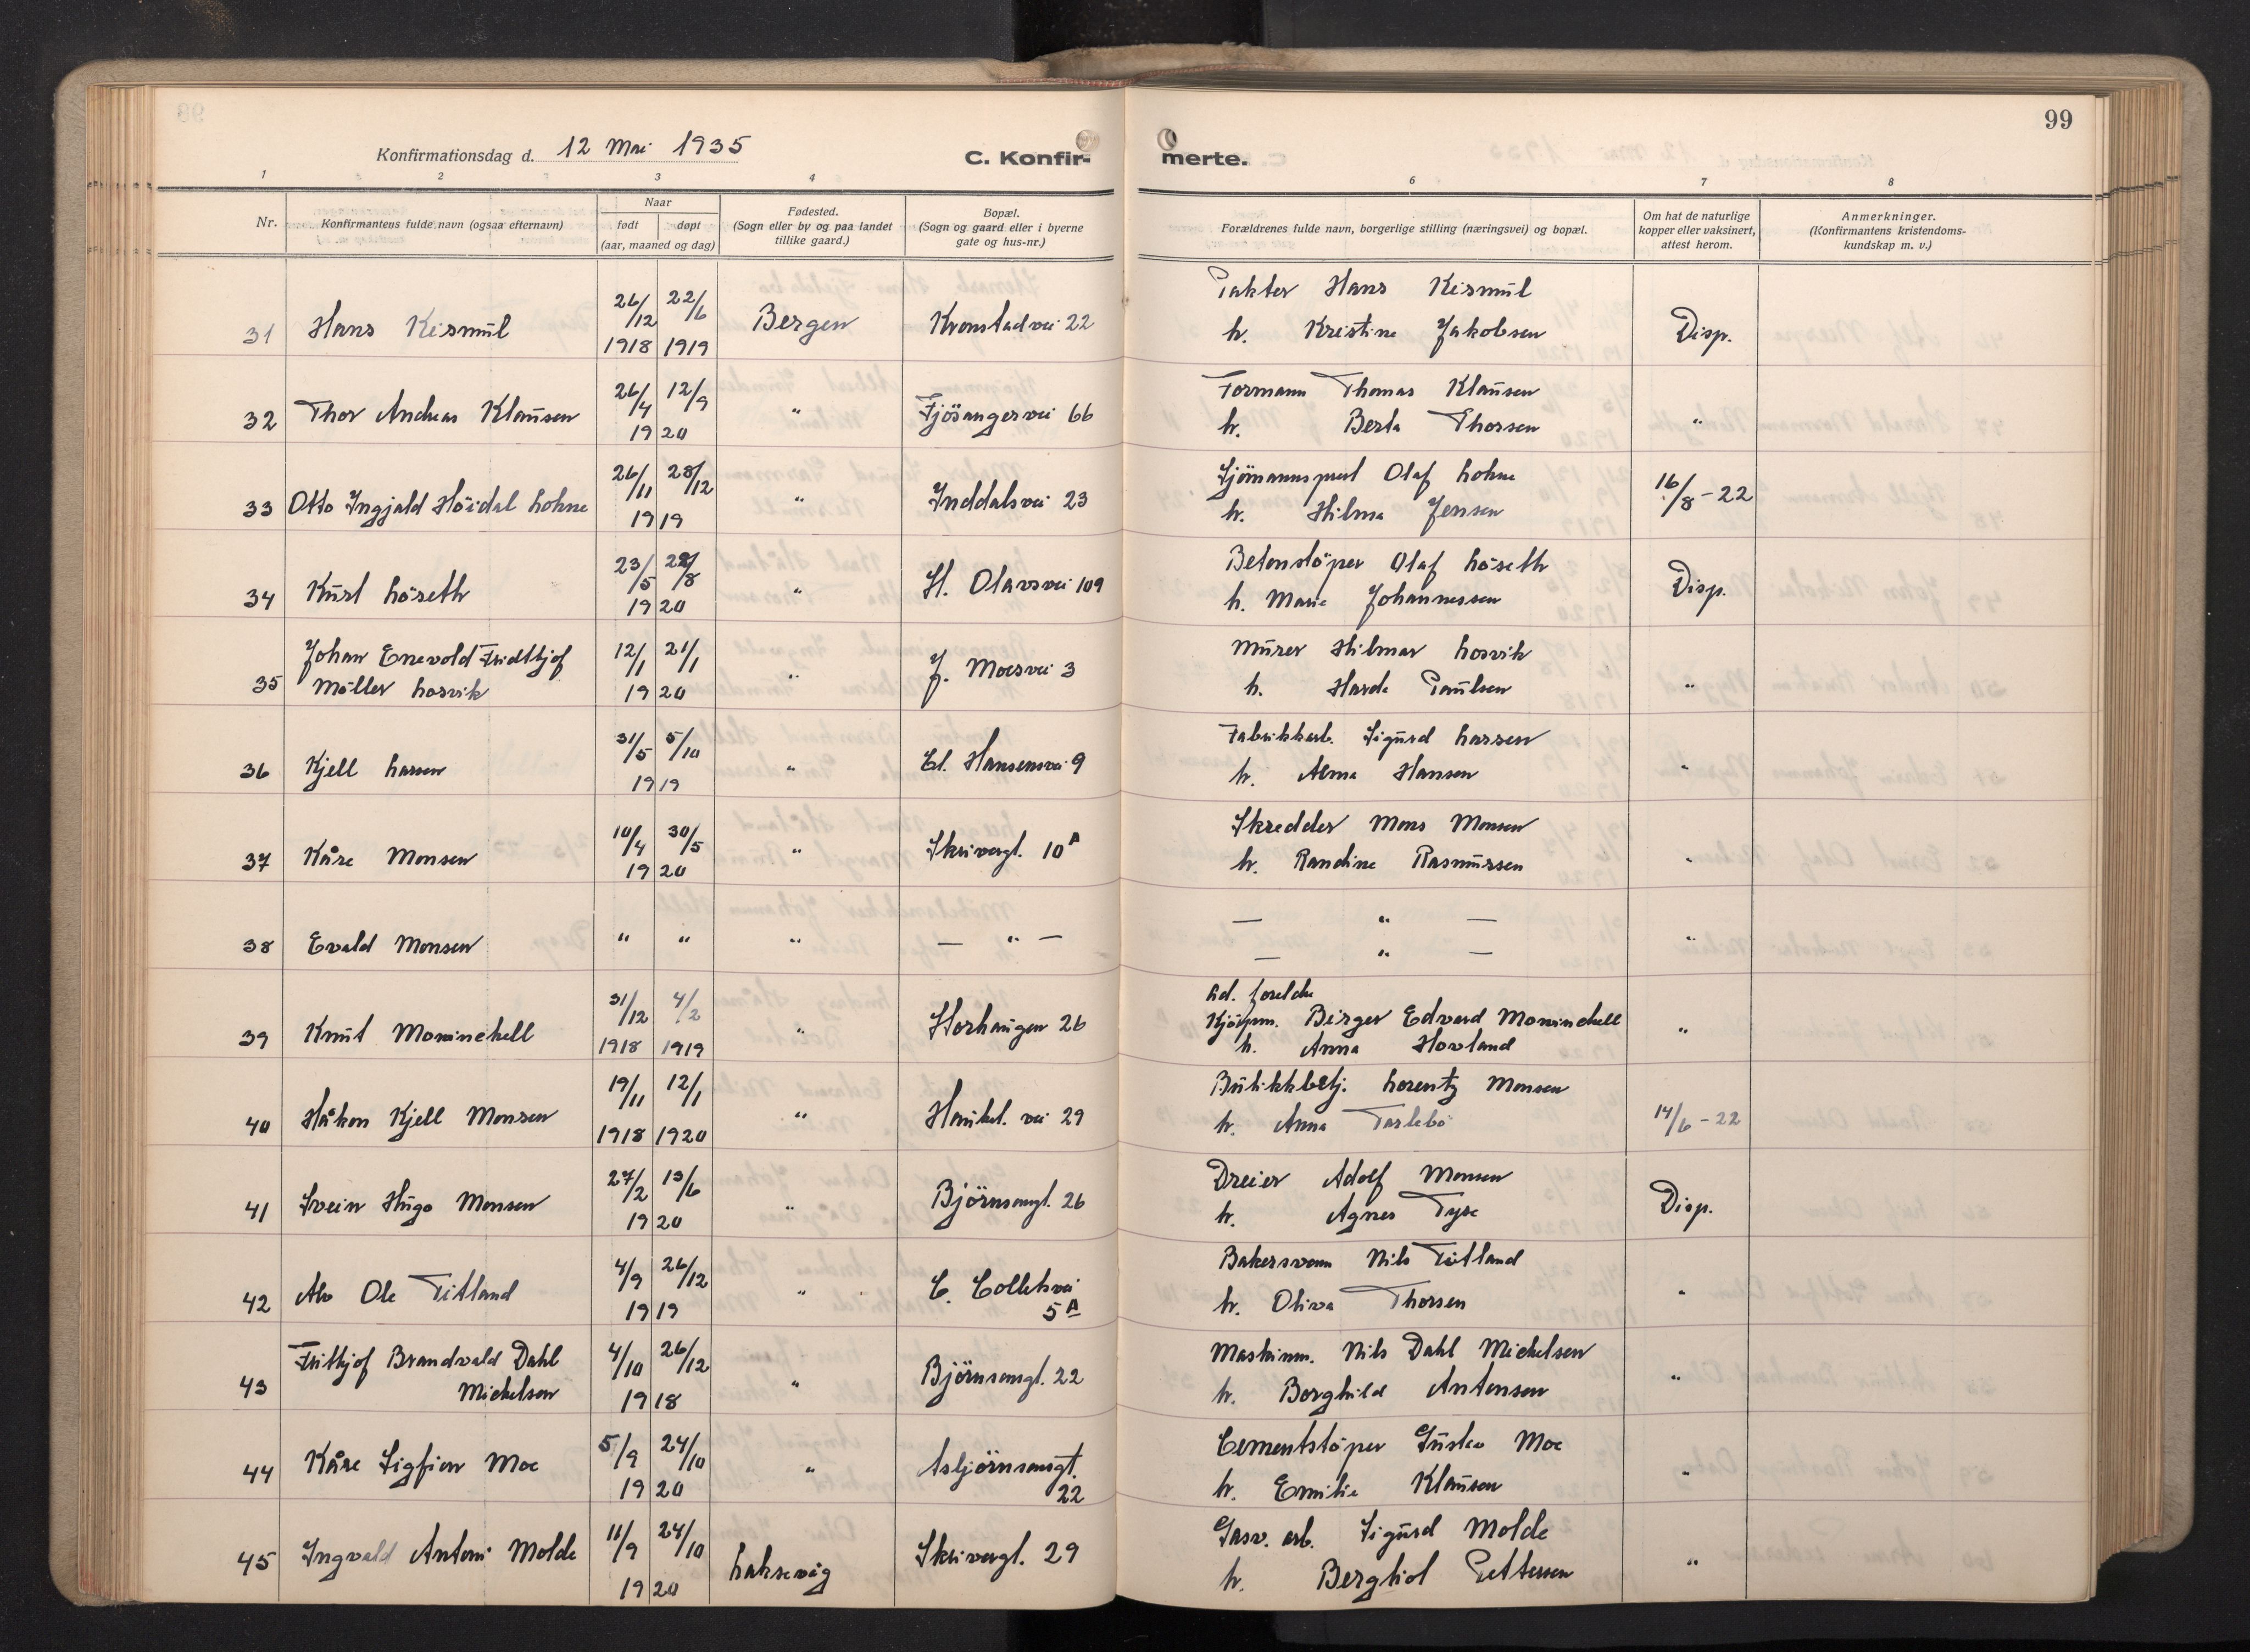 99
Konfirmationsdag d. 12 Mai 1935
C. Konfir-
merte.
1 2 3 4 5 6 7 8
Nr.
Konfirmantens fulde navn (ogsaa efternavn)
Naar
født
døpt
(aar, maaned og dag)
Fødested.
(Sogn eller by og paa landet
tillike gaard.)
Bopæl.
(Sogn og gaard eller i byerne
gate og hus-nr.)
Forældrenes fulde navn, borgerlige stilling (næringsvei) og bopæl.
Om hat de naturlige
kopper eller vaksinert,
attest herom.
Anmerkninger.
(Konfirmantens kristendoms-
kundskap m. v.)
31 Hans Keismül 26/12 1918 22/6 1919 Bergen Kronstadvei 22
Hans Keismül
h. Kristine Jakobsen Disp.
32 Thor Andreas Klausen 26/4 12/9 1920 " Fjösangervei 66
Formann Thomas Klausen
h. Berta Thorsen "
33 Otto Ingjald Höidal Lohne 26/11 28/12 1919 " Inddalsvei 23
Sjömannsprest Olaf Lohne
h. Hilma Jensen 16/8-22
34 Kurt Löseth 23/5 /8 1920 " St. Olavsvei 109
Betonstöper Olaf Löseth
h. Marie Johannessen Disp.
35 Johan Enevold Fridtjof
Möller Losvik 12/1 21/1 1920 " J. Moesvei 3
Murer Hilmar Losvik
h. Paulsen "
36 Kjell Larsen 31/5 5/10 1919 " Hansensvei 9
Fabrikkarb. Sigurd Larssen
h. Alma Hansen "
37 Kåre Monsen 10/4 30/5 1920 " Skrivergt. 10A
Skredder Mons Monsen
h. Randine Rasmussen "
38 Evald Monsen " " " — " —
— " —
— " — "
39 Knut Monsinchell 31/12 1918 4/2 1919 " Storhaugen 26
Ad. foreldre
Kjöpm. Birger Edvard
h. Anna Hovland "
40 Håkon Kjell Monsen 19/11 1918 12/1 1920 " Haukel. vei 29
Butikkbetj. Lorentz Monsen
h. Anna Tarlebö 14/6-22
41 Svein Hugo Monsen 27/2 13/6 1920 " Björnsonsgt. 26
Dreier Adolf Monsen
h. Agnes Tyse Disp.
42 Alv Ole Titland 4/9 26/12 1919 " C. Collettsvei
5A
Bakersvenn Nils Titland
h. Oliva Thorsen "
43 Fritjof Brandvald Dahl
Michelsen 4/10 26/12 1918 " Björnsonsgt. 22
Maskinm. Nils Dahl Michelsen
h. Borghild Antonsen "
44 Kåre Sigfion Moe 5/9 24/10 1920 " Asbjörnsensgt.
22
Cementstöper Gustav Moe
h. Emilie Klausen "
45 Ingvald Antoni Molde 11/9 24/10 1920 Laksevåg Skrivergt. 29
Gasv. arb. Sigurd Molde
h. Berghiot Pettersen "